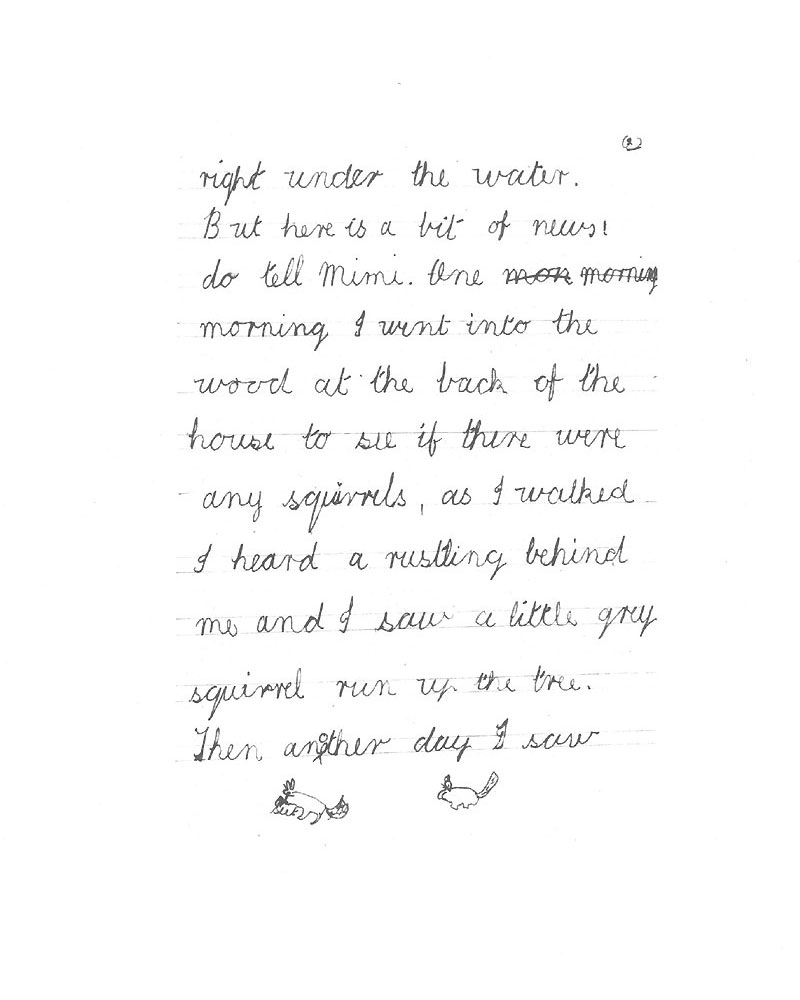 (2)
right under the water.
But here is a bit of news!
do tell Mimi. One mon morning
morning I went into the
wood at the back of the
house to see if there were
any squirrels, as I walked
I heard a rustling behind
me and I saw a little grey
squirrel run up the tree.
Then another day I saw